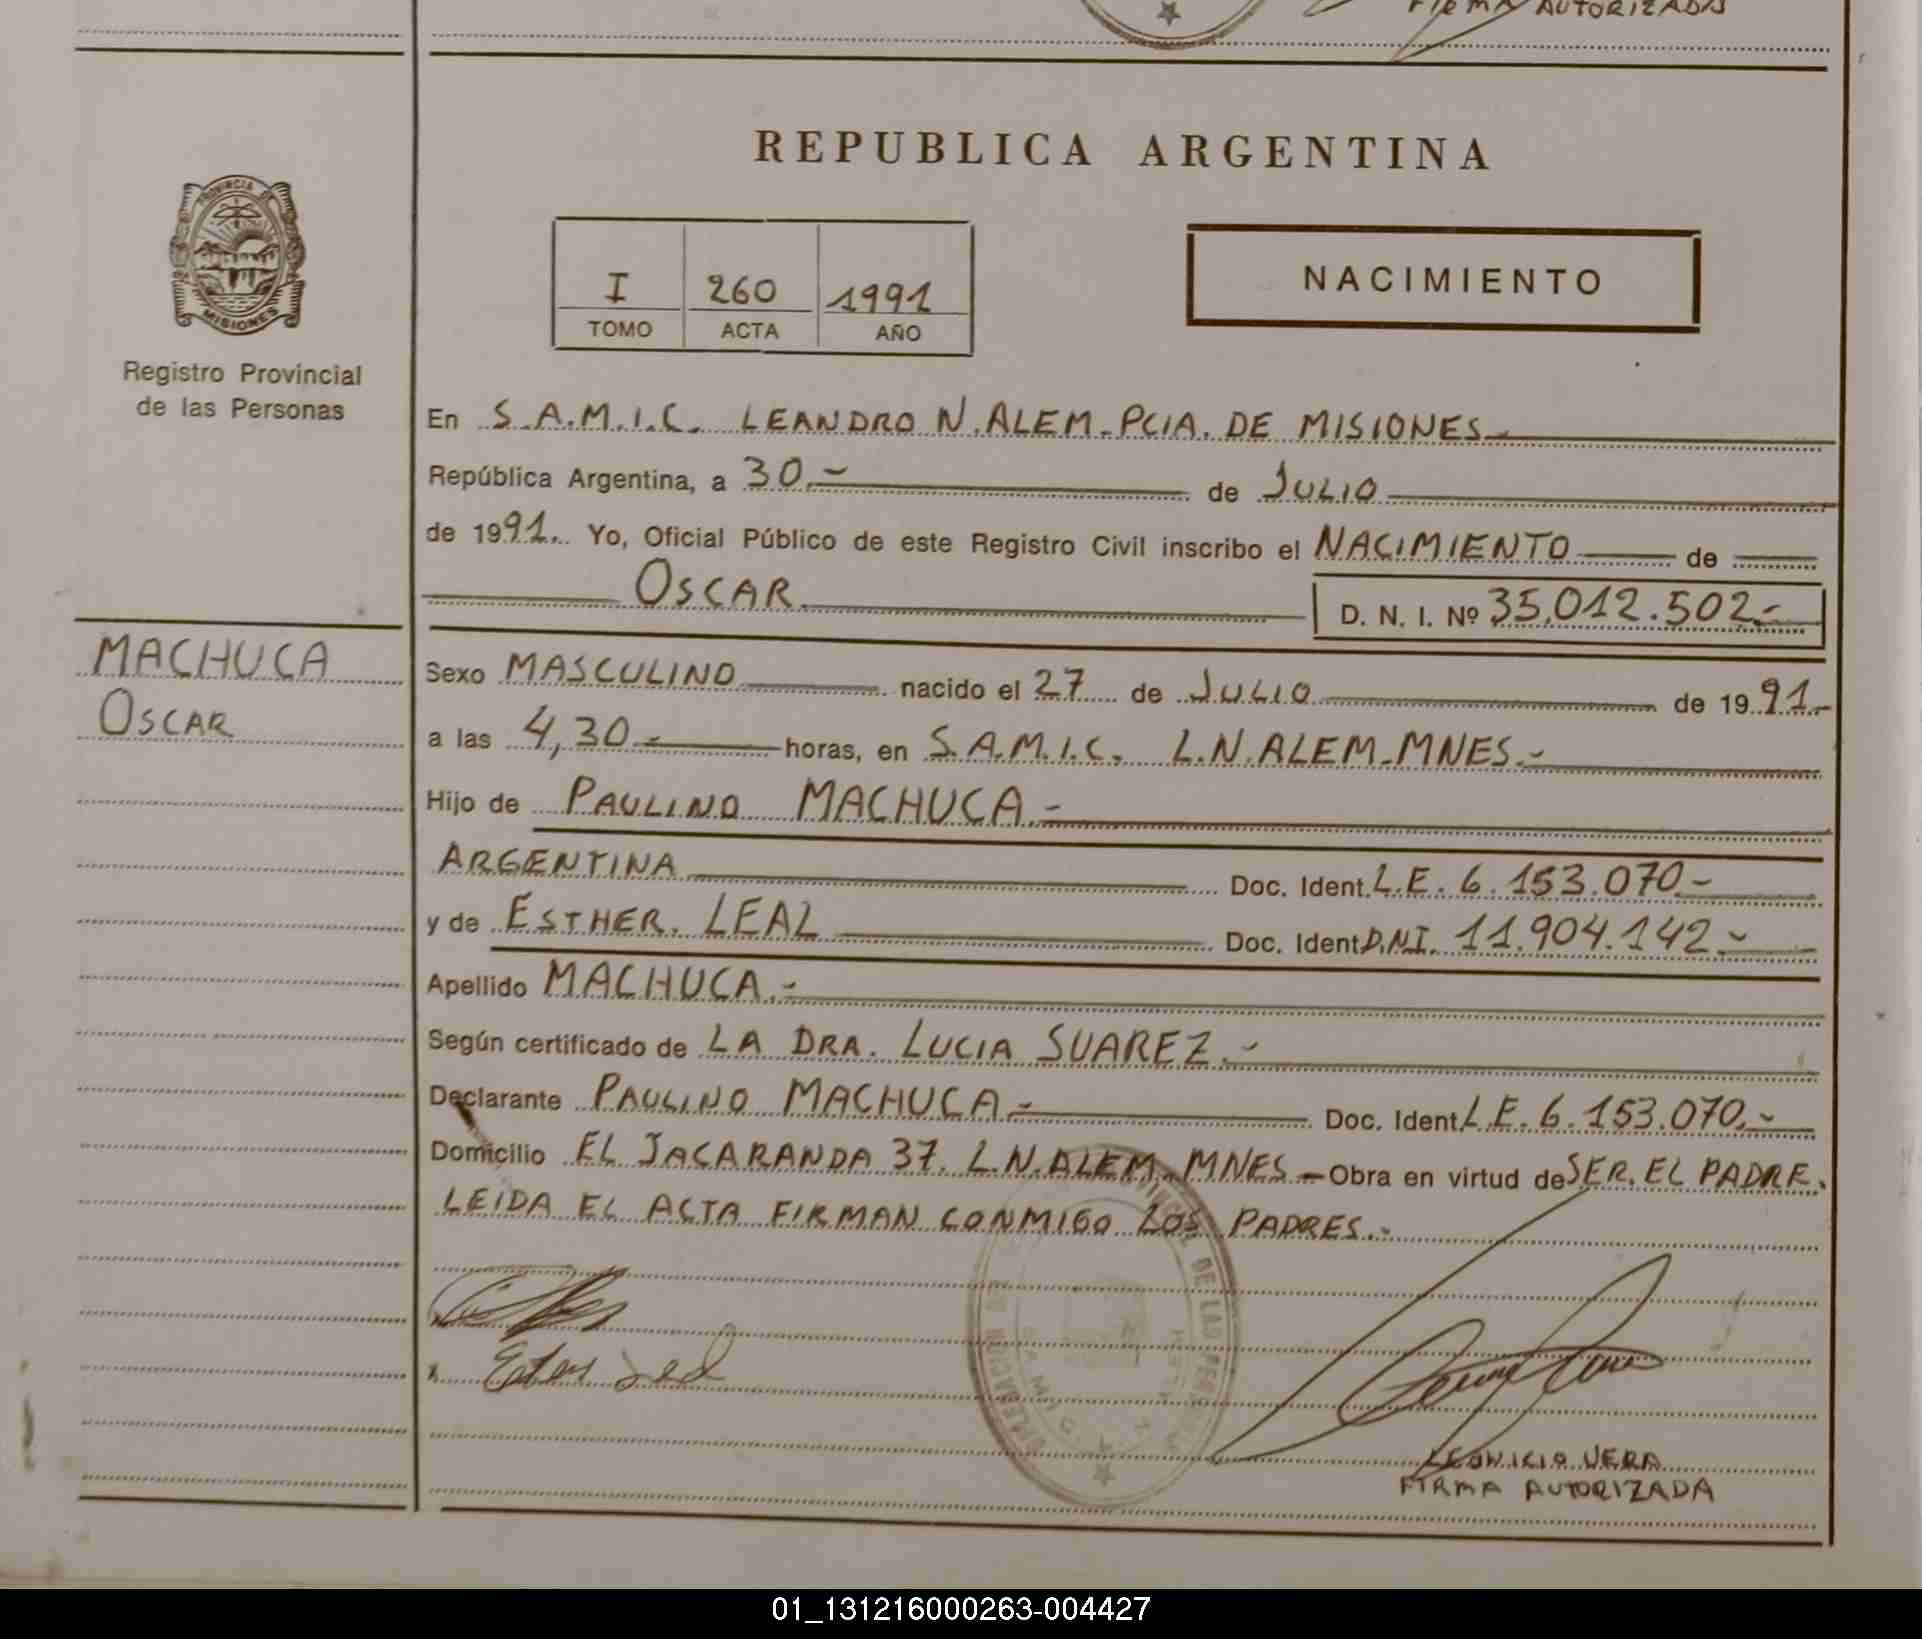 FIRMA AUTORIZADA
REPUBLICA ARGENTINA
PROVINCIA DE
MISIONES
Registro Provincial
de las Personas
I 260 1991
TOMO ACTA AÑO
NACIMIENTO
En S.A.M.I.C. LEANDRO N. ALEM - PCIA. DE MISIONES.-
República Argentina, a 30.- de JULIO
de 1991. Yo, Oficial Público de este Registro Civil inscribo el NACIMIENTO de
OSCAR D. N. I. Nº 35.012.502.-
MACHUCA
OSCAR
Sexo MASCULINO nacido el 27 de JULIO de 1991.-
a las 4,30.- horas, en S.A.M.I.C. L.N. ALEM - MNES.-
Hijo de PAULINO MACHUCA.-
ARGENTINA Doc. Ident. L.E. 6.153.070.-
y de ESTHER. LEAL Doc. Ident D.N.I. 11.904.142.-
Apellido MACHUCA.-
Según certificado de LA DRA. LUCIA SUAREZ.-
Declarante PAULINO MACHUCA.- Doc. Ident L.E. 6.153.070.-
Domicilio EL JACARANDA 37. L.N. ALEM - MNES - Obra en virtud de SER. EL PADRE.
LEIDA EL ACTA FIRMAN CONMIGO LOS PADRES.-
Ester Leal
LEONICIO VERA
FIRMA AUTORIZADA
01_131216000263-004427